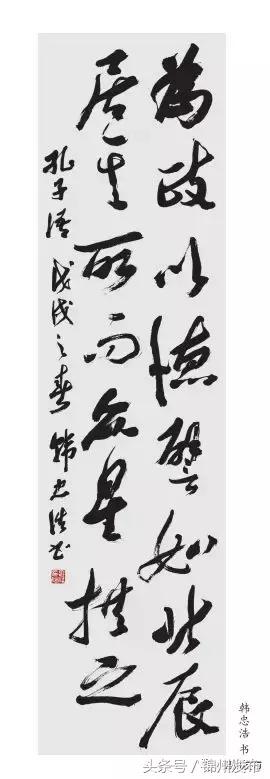 为政以德譬如北辰
居其所而众星拱之
孔子语 戊戌之春 韩忠浩书
韩忠浩 书
头条号/锦州发布